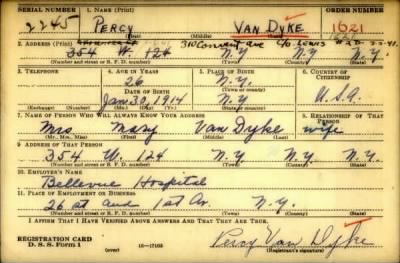 SERIAL NUMBER 1. NAME (Print) ORDER NUMBER
2245 PERCY VAN DYKE 1621
(First) (Middle) (Last)
2. ADDRESS (Print) 310 Convent ave C/o Lewis
354 W. 124 N.Y N.Y N.Y
(Number and street or R. F. D. number) (Town) (County) (State)
3. TELEPHONE 4. AGE IN YEARS 5. PLACE OF BIRTH 6. COUNTRY OF CITIZENSHIP
26 N.Y.
DATE OF BIRTH (Town or county)
Jan. 30, 1914 N.Y. U.S.A.
(Exchange) (Number) (Mo.) (Day) (Yr.) (State or country)
7. NAME OF PERSON WHO WILL ALWAYS KNOW YOUR ADDRESS 8. RELATIONSHIP OF THAT PERSON
Mrs Mary Van Dyke wife
(Mr., Mrs., Miss) (First) (Middle) (Last)
9. ADDRESS OF THAT PERSON
354 W. 124 N.Y N.Y. N.Y.
(Number and street or R. F. D. number) (Town) (County) (State)
10. EMPLOYER'S NAME
Bellevue Hospital
11. PLACE OF EMPLOYMENT OR BUSINESS
26 st and 1st Av. N.Y.
(Number and street or R. F. D. number) (Town) (County) (State)
I AFFIRM THAT I HAVE VERIFIED ABOVE ANSWERS AND THAT THEY ARE TRUE.
REGISTRATION CARD
D. S. S. Form 1 (over) 16-17105 Percy Van Dyke
(Registrant's signature)